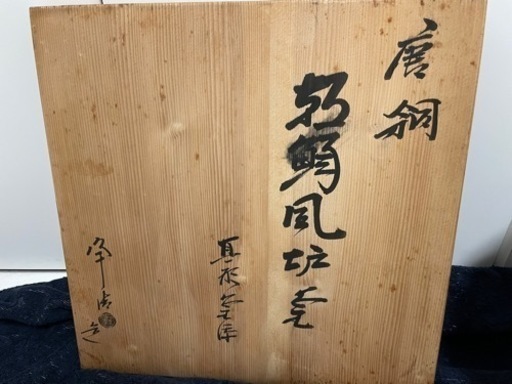 唐銅
朝鮮風炉
真形釜添
浄清造